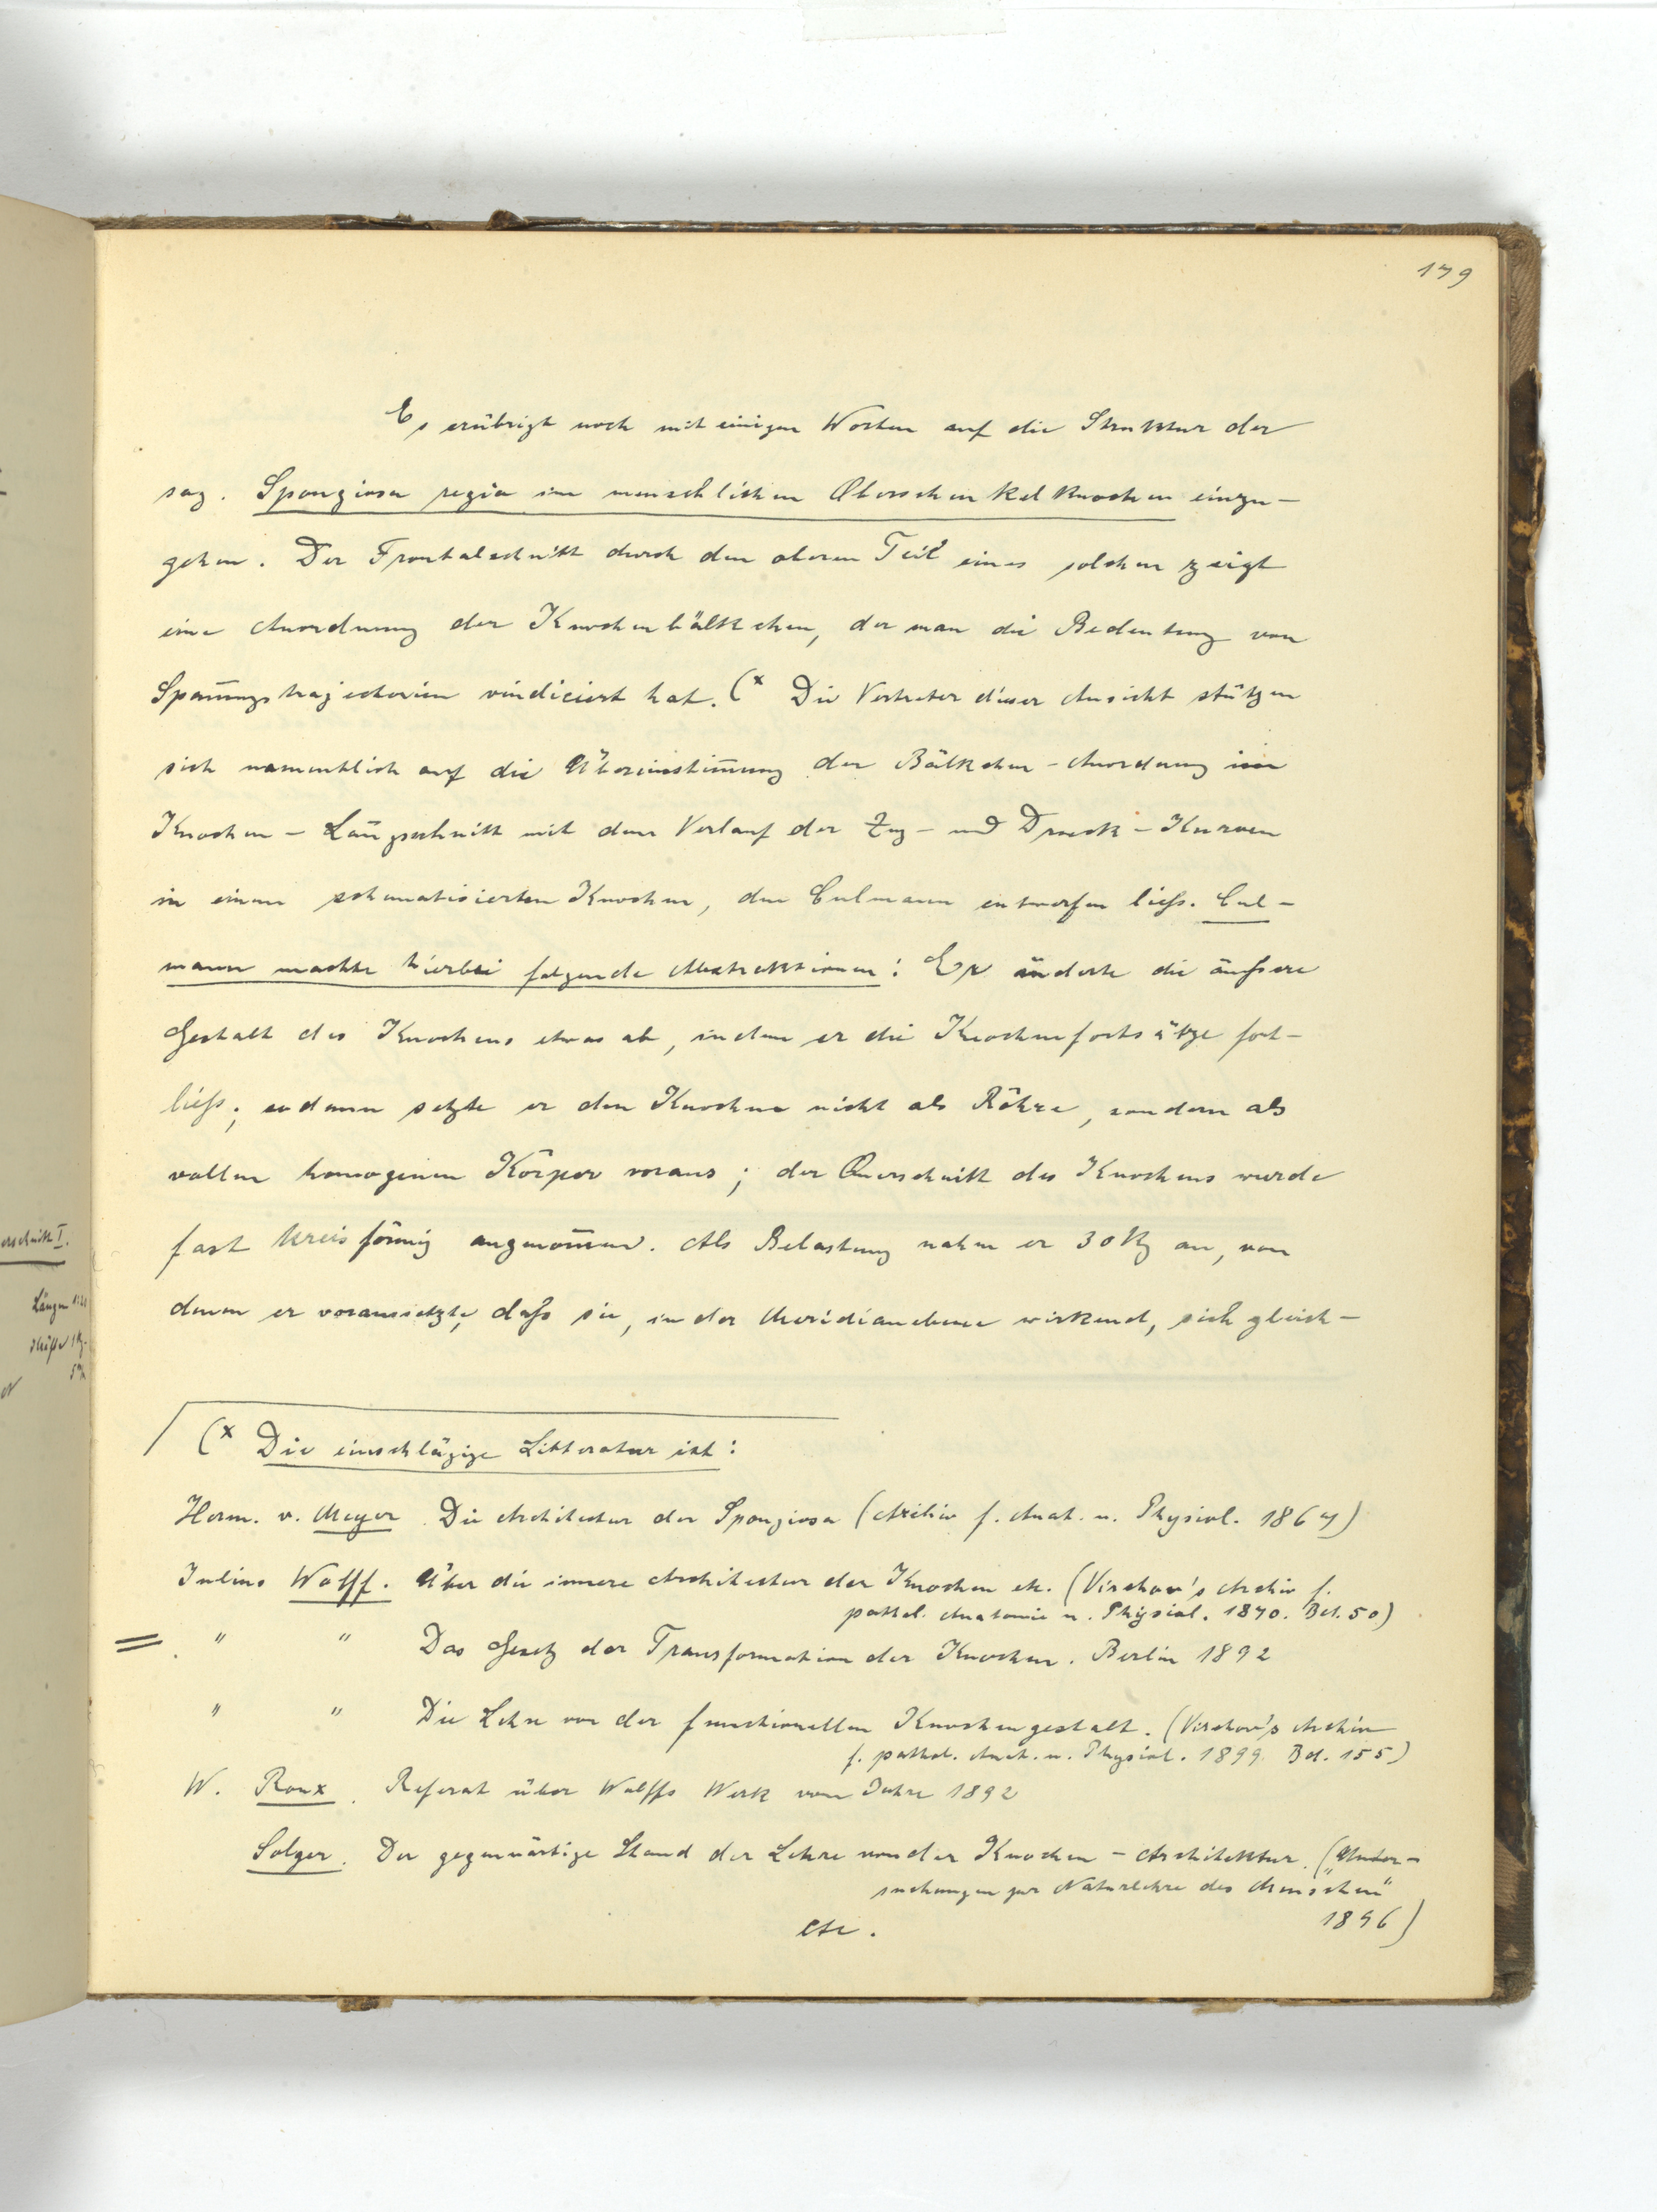 179
Es erübrigt noch mit einigen Worten auf die Struktur der
sog. Spongiosa regia im menschlichen Oberschenkelknochen einzu-
gehen. Der Frontalschnitt durch den oberen Teil eines solchen zeigt
eine Anordnung der Knochenbälkchen, der man die Bedeutung von
Span̄ungstrajectorien vindiciert hat. (x Die Vertreter dieser Ansicht stützen
sich namentlich auf die Übereinstim̄ung der Bälkchen-Anordnung im
Knochen-Längsschnitt mit dem Verlauf der Zug- und Druck-Kurven
in einem schematisierten Knochen, den Culmann entwerfen liess. Cul-
mann machte hierbei folgende Abstraktionen: Er änderte die äussere
Gestalt des Knochens etwas ab, indem er die Knochenfortsätze fort-
liess; sodann setzte er den Knochen nicht als Röhre, sondern als
vollen homogenen Körper voraus; der Querschnitt des Knochens wurde
fast kreisförmig angenom̄en. Als Belastung nahm er 30 Kg an, von
denen er voraussetzte, dass sie, in der Meridianebene wirkend, sich gleich-
(x Die einschlägige Litteratur ist:
Herm. v. Meyer. Die Architectur der Spongiosa (Archiv f. Anat. u. Physiol. 1867)
Julius Wolff. Über die innere Architectur der Knochen etc. (Virchow's Archiv f.
pathol. Anatomie u. Physiol. 1870. Bd. 50)
= " " Das Gesetz der Transformation der Knochen. Berlin 1892
" " Die Lehre von der functionellen Knochengestalt. (Virchow's Archiv
f. pathol. Anat. u. Physiol. 1899. Bd. 155)
W. Roux. Referat über Wolffs Werk vom Jahre 1892
Solger. Der gegenwärtige Stand der Lehre von der Knochen-Architektur. („Unter-
suchungen zur Naturlehre des Menschen"
1896)
etc.